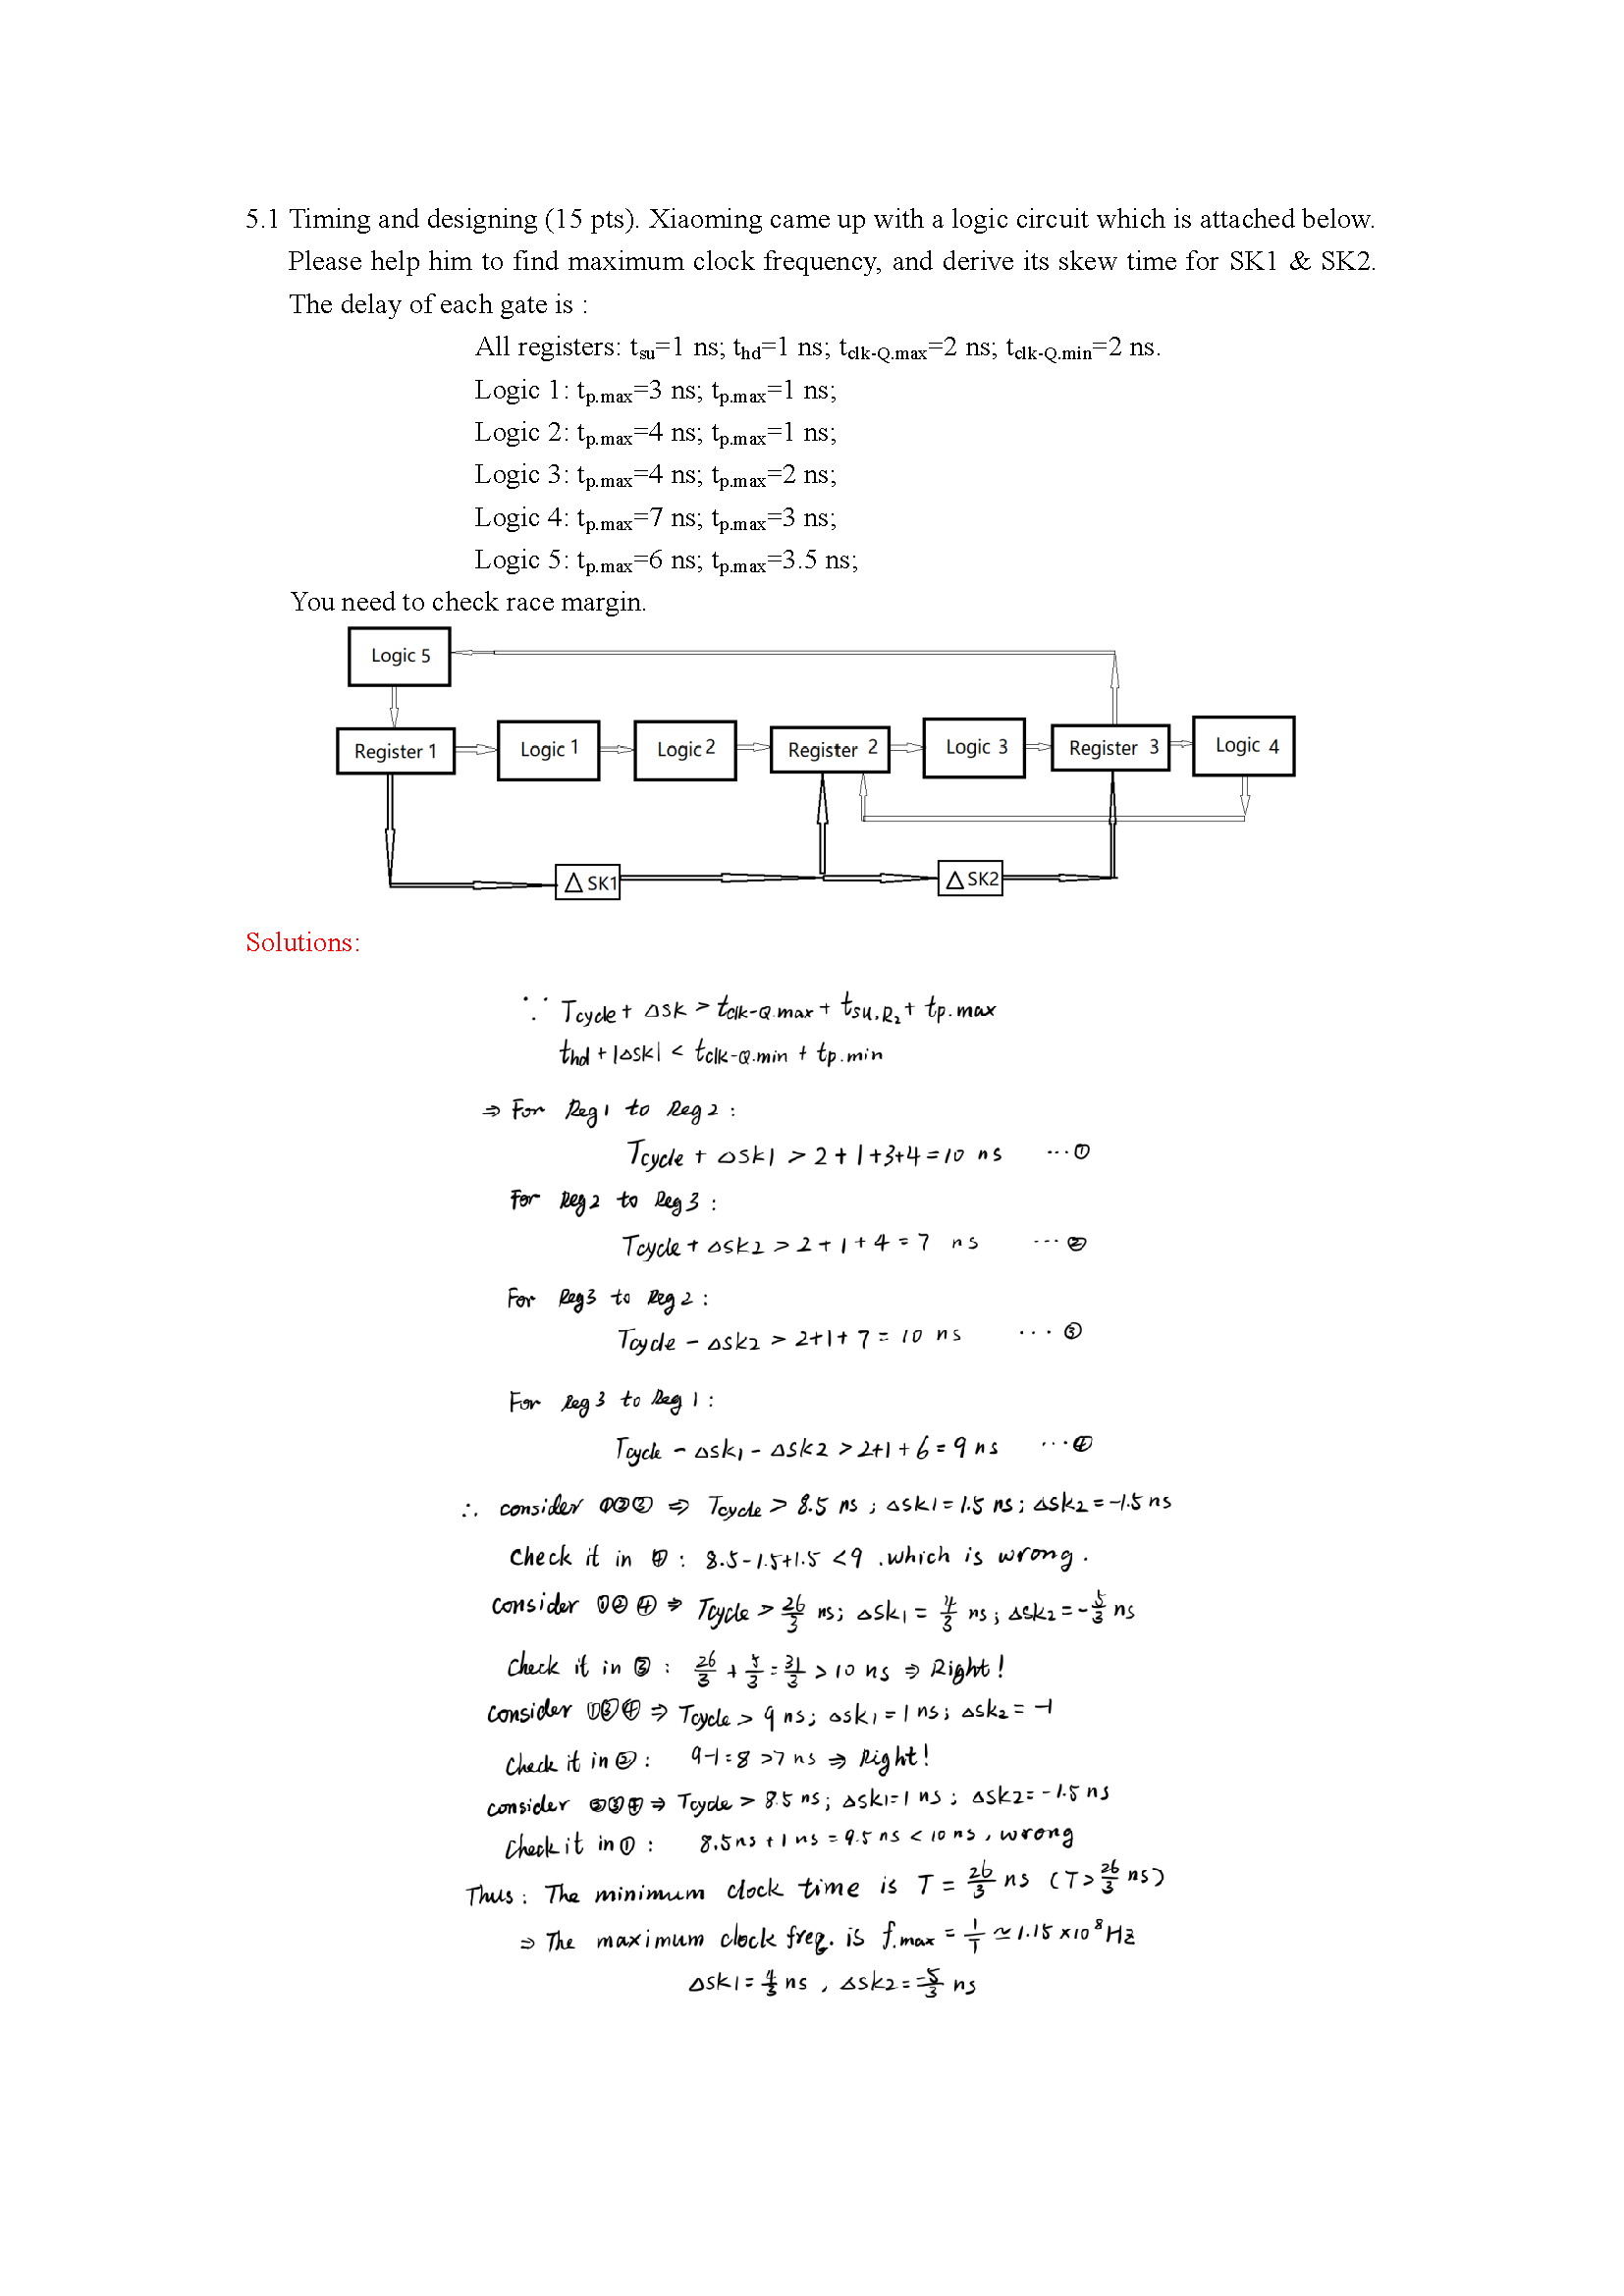 5.1 Timing and designing (15 pts). Xiaoming came up with a logic circuit which is attached below.
Please help him to find maximum clock frequency, and derive its skew time for SK1 & SK2.
The delay of each gate is :
All registers: tsu=1 ns; thd=1 ns; tclk-Q.max=2 ns; tclk-Q.min=2 ns.
Logic 1: tp.max=3 ns; tp.max=1 ns;
Logic 2: tp.max=4 ns; tp.max=1 ns;
Logic 3: tp.max=4 ns; tp.max=2 ns;
Logic 4: tp.max=7 ns; tp.max=3 ns;
Logic 5: tp.max=6 ns; tp.max=3.5 ns;
You need to check race margin.
Logic 5
Register 1
Logic 1
Logic 2
Register 2
Logic 3
Register 3
Logic 4
△ SK1
△ SK2
Solutions:
∵ Tcycle + △SK > tclk-Q.max + tSU,R2 + tp.max
thd + |△SK| < tclk-Q.min + tp.min
⇒ For Reg1 to Reg2 :
Tcycle + △SK1 > 2 + 1 + 3 + 4 = 10 ns ...①
For Reg2 to Reg3 :
Tcycle + △SK2 > 2 + 1 + 4 = 7 ns ...②
For Reg3 to Reg2 :
Tcycle - △SK2 > 2+1+7 = 10 ns ...③
For Reg3 to Reg1 :
Tcycle - △SK1 - △SK2 > 2+1+6 = 9 ns ...④
∴ consider ①②③ ⇒ Tcycle > 8.5 ns ; △SK1 = 1.5 ns ; △SK2 = -1.5 ns
Check it in ④ : 8.5-1.5+1.5 < 9 . which is wrong.
consider ①②④ ⇒ Tcycle > 26/3 ns; △SK1 = 4/3 ns ; △SK2 = -5/3 ns
Check it in ③ : 26/3 + 5/3 = 31/3 > 10 ns ⇒ Right!
consider ①③④ ⇒ Tcycle > 9 ns; △SK1 = 1 ns; △SK2 = -1
Check it in ② : 9-1=8 >7 ns ⇒ Right!
consider ②③④ ⇒ Tcycle > 8.5 ns; △SK1=1 ns ; △SK2= -1.5 ns
Check it in ① : 8.5ns + 1 ns = 9.5 ns < 10 ns, wrong
Thus: The minimum clock time is T = 26/3 ns (T> 26/3 ns)
⇒ The maximum clock freq. is f.max = 1/T ≃ 1.15 ×10^8 Hz
△SK1 = 4/3 ns , △SK2 = -5/3 ns